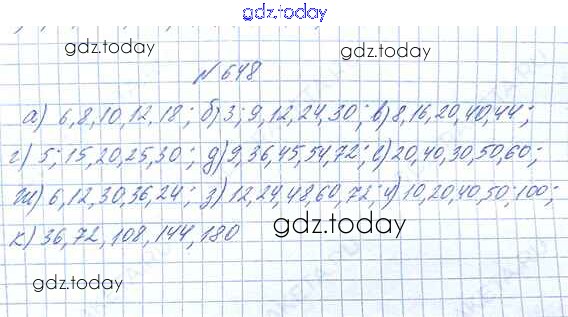 gdz.today
gdz.today
gdz.today
№648
а) 6,8,10,12,18; б) 3; 9,12,24,30; в) 8,16,20,40,44;
г) 5; 15,20,25,30; д) 9,36,45,54,72; е) 20,40,30,50,60;
ж) 6,12,30,36,24; з) 12,24,48,60,72; и) 10,20,40,50,100;
gdz.today
к) 36,72,108,144,180
gdz.today